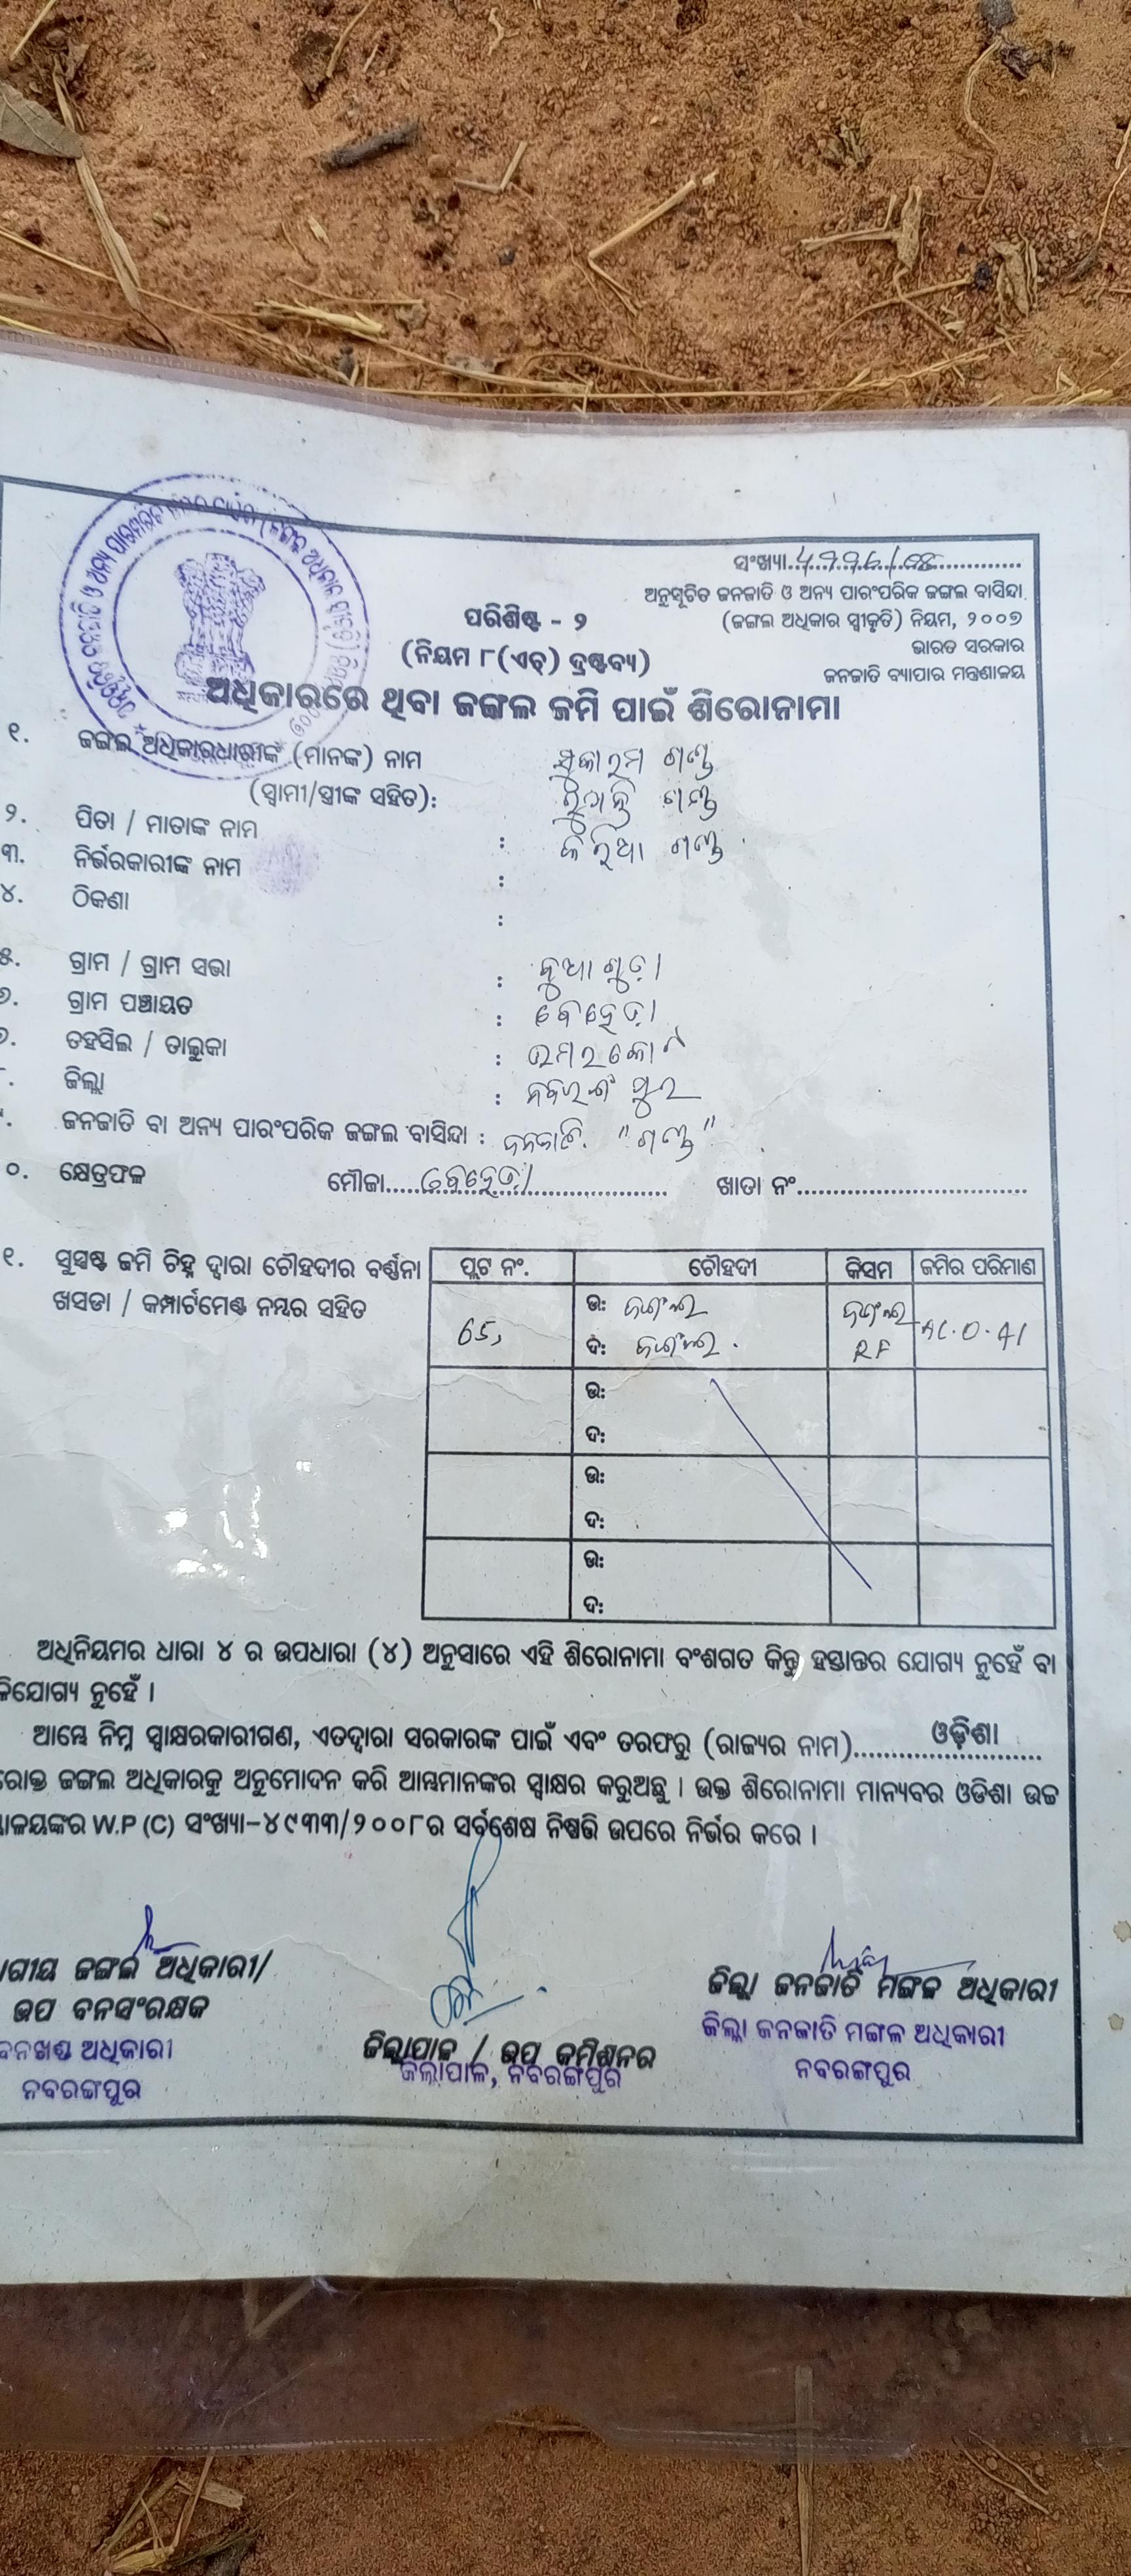 ସଂଖ୍ୟା
ଅନୁସୂଚିତ ଜନଜାତି ଓ ଅନ୍ୟ ପାରଂପରିକ ଜଙ୍ଗଲ ବାସିନ୍ଦା
(ଜଙ୍ଗଲ ଅଧିକାର ସ୍ୱୀକୃତି) ନିୟମ, ୨୦୦୭
ଭାରତ ସରକାର
ଜନଜାତି ବ୍ୟାପାର ମନ୍ତ୍ରଣାଳୟ
ପରିଶିଷ୍ଟ - ୨
(ନିୟମ ୮(ଏଚ୍) ଦ୍ରଷ୍ଟବ୍ୟ)
ଅଧିକାରରେ ଥିବା ଜଙ୍ଗଲ ଜମି ପାଇଁ ଶିରୋନାମା
୧. ଜଙ୍ଗଲ ଅଧିକାରଧାରୀଙ୍କ (ମାନଙ୍କ) ନାମ ସୁକାରାମ ଗଣ୍ଡ
(ସ୍ୱାମୀ/ସ୍ତ୍ରୀଙ୍କ ସହିତ): ଗଣ୍ଡ
୨. ପିତା / ମାତାଙ୍କ ନାମ : ଗଣ୍ଡ
୩. ନିର୍ଭରକାରୀଙ୍କ ନାମ :
୪. ଠିକଣା :
୫. ଗ୍ରାମ / ଗ୍ରାମ ସଭା : ନୁଆଗୁଡ଼ା
ଗ୍ରାମ ପଞ୍ଚାୟତ : ବେହେଡ଼ା
ତହସିଲ / ତାଲୁକା : ଉମରକୋଟ
ଜିଲ୍ଲା : ନବରଂଗପୁର
ଜନଜାତି ବା ଅନ୍ୟ ପାରଂପରିକ ଜଙ୍ଗଲ ବାସିନ୍ଦା : ଜନଜାତି. "ଗଣ୍ଡ"
୦. କ୍ଷେତ୍ରଫଳ ମୌଜା ବେହେଡ଼ା ଖାତା ନଂ
୧. ସୁସ୍ପଷ୍ଟ ଜମି ଚିହ୍ନ ଦ୍ୱାରା ଚୌହଦୀର ବର୍ଣ୍ଣନା
ଖସଡା / କମ୍ପାର୍ଟମେଣ୍ଟ ନମ୍ବର ସହିତ
ପ୍ଲଟ ନଂ. ଚୌହଦୀ କିସମ ଜମିର ପରିମାଣ
65, ଉ: ଜଙ୍ଗଲ ଜଙ୍ଗଲ AC.0.41
ଦ: ଜଙ୍ଗଲ. RF
ଉ:
ଦ:
ଉ:
ଦ:
ଉ:
ଦ:
ଅଧିନିୟମର ଧାରା ୪ ର ଉପଧାରା (୪) ଅନୁସାରେ ଏହି ଶିରୋନାମା ବଂଶଗତ କିନ୍ତୁ ହସ୍ତାନ୍ତର ଯୋଗ୍ୟ ନୁହେଁ ବା
କିଯୋଗ୍ୟ ନୁହେଁ ।
ଆମ୍ଭେ ନିମ୍ନ ସ୍ୱାକ୍ଷରକାରୀଗଣ, ଏତଦ୍ୱାରା ସରକାରଙ୍କ ପାଇଁ ଏବଂ ତରଫରୁ (ରାଜ୍ୟର ନାମ) ଓଡ଼ିଶା
ରୋକ୍ତ ଜଙ୍ଗଲ ଅଧିକାରକୁ ଅନୁମୋଦନ କରି ଆମ୍ଭମାନଙ୍କର ସ୍ୱାକ୍ଷର କରୁଅଛୁ । ଉକ୍ତ ଶିରୋନାମା ମାନ୍ୟବର ଓଡିଶା ଉଚ୍ଚ
ାଳୟଙ୍କର W.P (C) ସଂଖ୍ୟା-୪୯୩୩/୨୦୦୮ର ସର୍ବଶେଷ ନିଷ୍ପତ୍ତି ଉପରେ ନିର୍ଭର କରେ ।
ାଗୀୟ ଜଙ୍ଗଲ ଅଧିକାରୀ/
ଉପ ବନସଂରକ୍ଷକ
ବନଖଣ୍ଡ ଅଧିକାରୀ
ନବରଙ୍ଗପୁର
ଜିଲ୍ଲାପାଳ / ଉପ କମିଶନର
ଜିଲ୍ଲାପାଳ, ନବରଙ୍ଗପୁର
ଜିଲ୍ଲା ଜନଜାତି ମଙ୍ଗଳ ଅଧିକାରୀ
ଜିଲ୍ଲା ଜନଜାତି ମଙ୍ଗଳ ଅଧିକାରୀ
ନବରଙ୍ଗପୁର